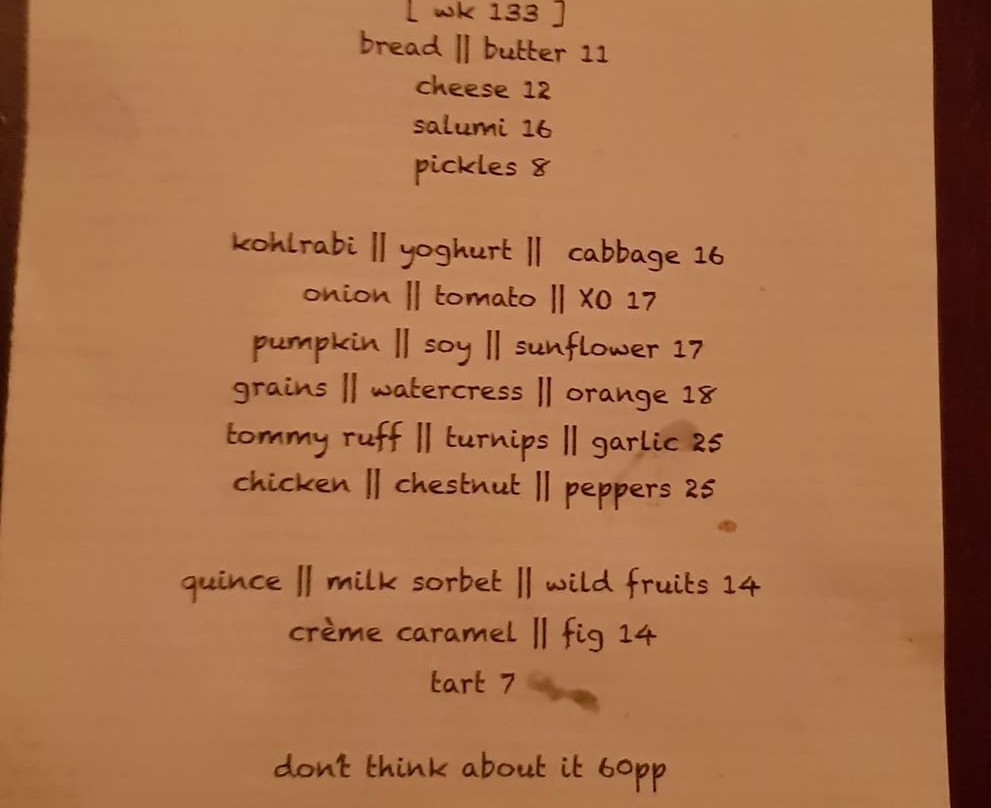 [ wk 133 ]
bread || butter 11
cheese 12
salumi 16
pickles 8
kohlrabi || yoghurt || cabbage 16
onion || tomato || XO 17
pumpkin || soy || sunflower 17
grains || watercress || orange 18
tommy ruff || turnips || garlic 25
chicken || chestnut || peppers 25
quince || milk sorbet || wild fruits 14
crème caramel || fig 14
tart 7
don't think about it 60pp